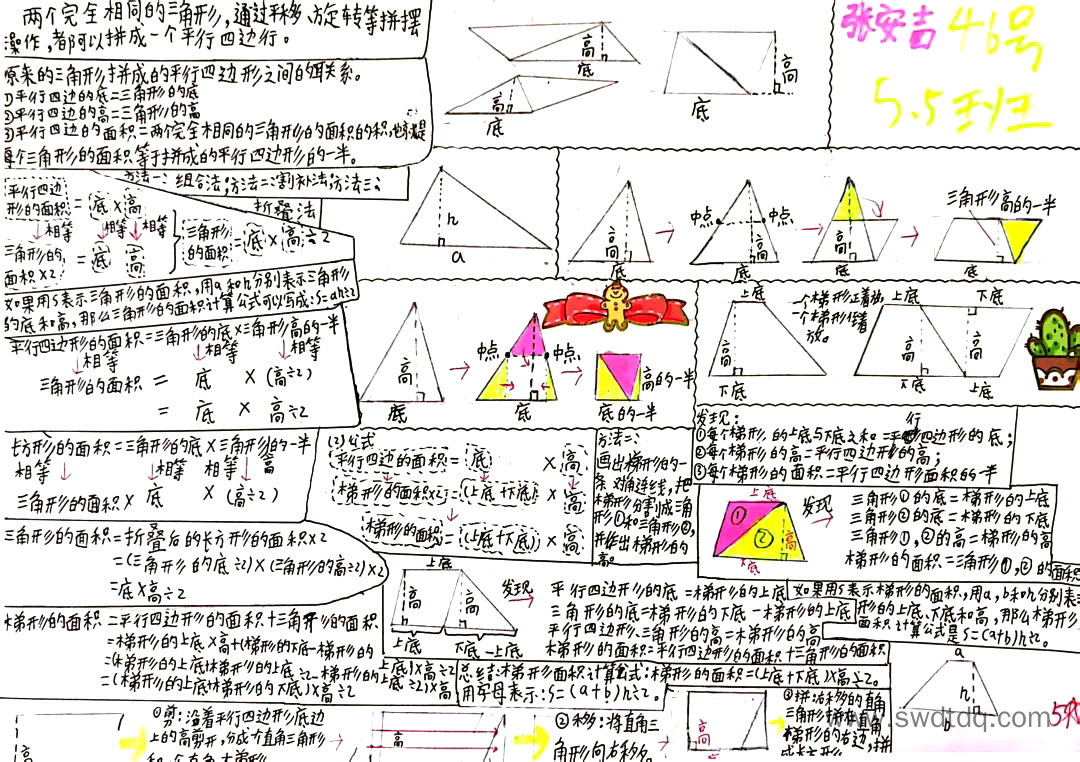 两个完全相同的三角形,通过平移、旋转等拼摆
操作,都可以拼成一个平行四边行。
原来的三角形拼成的平行四边形之间的关系。
①平行四边的底=三角形的底
②平行四边的高=三角形的高
③平行四边的面积=两个完全相同的三角形的面积的积,也就是
每个三角形的面积等于拼成的平行四边形的一半。
方法一:组合法;方法二:割补法;方法三:
折叠法
平行四边形的面积=底×高
相等 相等 相等
三角形的面积×2=底 高
三角形的面积=底×高÷2
如果用S表示三角形的面积,用a和h分别表示三角形
的底和高,那么三角形的面积计算公式可以写成:S=ah÷2
平行四边形的面积=三角形的底×三角形高的一半
相等 相等 相等
三角形的面积= 底 ×(高÷2)
= 底 × 高÷2
长方形的面积=三角形的底×三角形的一半
高
相等 相等 相等
三角形的面积× 底 ×(高÷2)
三角形的面积=折叠后的长方形的面积×2
=(三角形的底÷2)×(三角形的高÷2)×2
=底×高÷2
梯形的面积=平行四边形的面积+三角形的面积
=梯形的上底×高+(梯形的下底-梯形的
上底)×高÷2
=(梯形的上底+梯形的上底÷2-梯形的
上底÷2)×高
=(梯形的上底+梯形的下底)×高÷2
高
底
高
底
高
底
张安吉 46号
5.5班
h
a
高
底
中点 中点
高
底
高
底
三角形高的一半
高
底
高
底
中点 中点
底
高的一半
底的一半
上底
高
下底
一个梯形正着放
一个梯形倒着
放。
上底 下底
高 高
下底 上底
(2)公式
平行四边的面积=底 ×高
梯形的面积×2=(上底+下底)×高
梯形的面积=(上底+下底)×高
方法二:
画出梯形的一
条对角连线,把
梯形分割成三角
形①和三角形②,
并作出梯形的
高。
发现:
①每个梯形的上底与下底之和=平行四边形的底;
②每个梯形的高=平行四边形的高;
③每个梯形的面积=平行四边形面积的一半
上底
①
②
高
下底
发现
三角形①的底=梯形的上底
三角形②的底=梯形的下底
三角形①,②的高=梯形的高
梯形的面积=三角形①,②的面积
上底
高 高
上底 下底-上底
发现
平行四边形的底=梯形的上底
三角形的底=梯形的下底-梯形的上底
平行四边形、三角形的高=梯形的高
梯形的面积=平行四边形的面积+三角形的面积
如果用S表示梯形的面积,用a,b和h分别表示
形的上底、下底和高,那么梯形
面积计算公式是S=(a+b)h÷2。
总结:梯形面积计算公式:梯形的面积=(上底+下底)×高÷2。
用字母表示:S=(a+b)h÷2。
a
h
b
高
①剪:沿着平行四边形底边
上的高剪开,分成个直角三角形
和一个直角梯形
高
②移:将直角三
角形向右移动。
高
底
③拼:沿移的直角
三角形拼在直角
梯形的右边,拼
成长方形
www.swdtdq.com